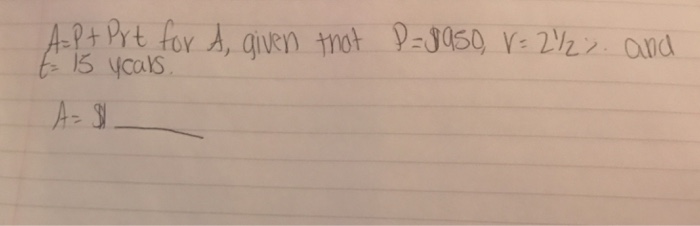 A=P+Prt for A, given that P=$950, r= 2½%. and
t= 15 years.
A= $